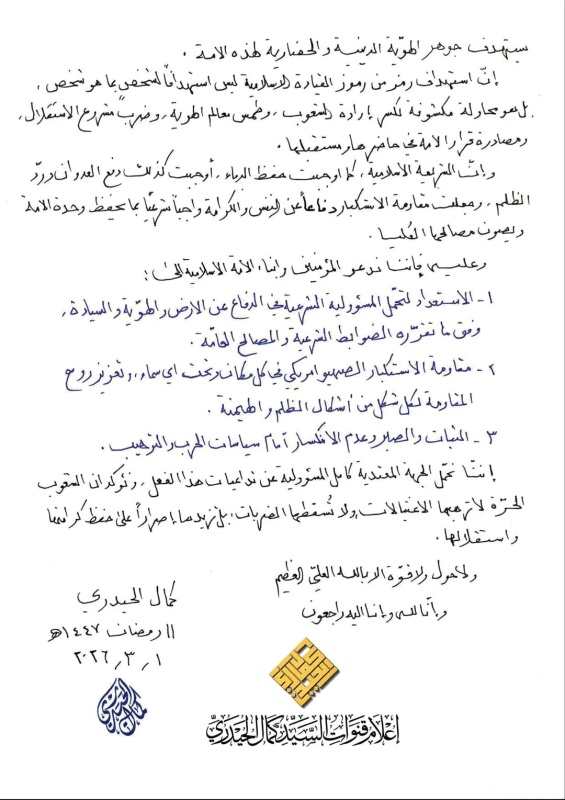 سيتهدف جوهر الهوية الدينية والحضارية لهذه الأمة .
إنّ استهداف رمز من رموز القيادة الإسلامية ليس استهدافاً لشخص بما هو شخص ،
بل هو محاولة مكشوفة لكسر إرادة الشعوب ، وطمس معالم الهوية ، وضرب مشروع الاستقلال ،
ومصادرة قرار الأمة في حاضرها ومستقبلها .
وإنّ الشريعة الإسلامية ، كما أوجبت حفظ الدماء ، أوجبت كذلك دفع العدوان وردّ
الظلم ، وجعلت مقاومة الاستكبار دفاعاً عن النفس والكرامة واجباً شرعياً بما يحفظ وحدة الأمة
ويصون مصالحها العُليا .
وعليه فإننا ندعو المؤمنين وأبناء الأمة الإسلامية إلى :
١ - الاستعداد لتحمّل المسؤولية الشرعية في الدفاع عن الأرض والهويّة والسيادة ،
وفق ما تقرّره الضوابط الشرعية والمصالح العامّة .
٢ - مقاومة الاستكبار الصهيوامريكي في كل مكان وتحت أي سماء ، وتعزيز روح
المقاومة لكل شكل من أشكال الظلم والهيمنة .
٣ - الثبات والصبر وعدم الانكسار أمام سياسات الحرب والترهيب .
إننا نحمّل الجهة المعتدية كامل المسؤولية عن تداعيات هذا الفعل ، ونؤكد أن الشعوب
الحرّة لا ترهبها الاغتيالات ولا تُسقطها الضربات ، بل تزيدها إصراراً على حفظ كرامتها
واستقلالها .
ولا حول ولا قوّة إلا بالله العليّ العظيم
وإنّا لله وإنا إليه راجعون
كمال الحيدري
١١ رمضان ١٤٤٧هـ
٢٠٢٦/٣/١
إعلام قنوات السيد كمال الحيدري